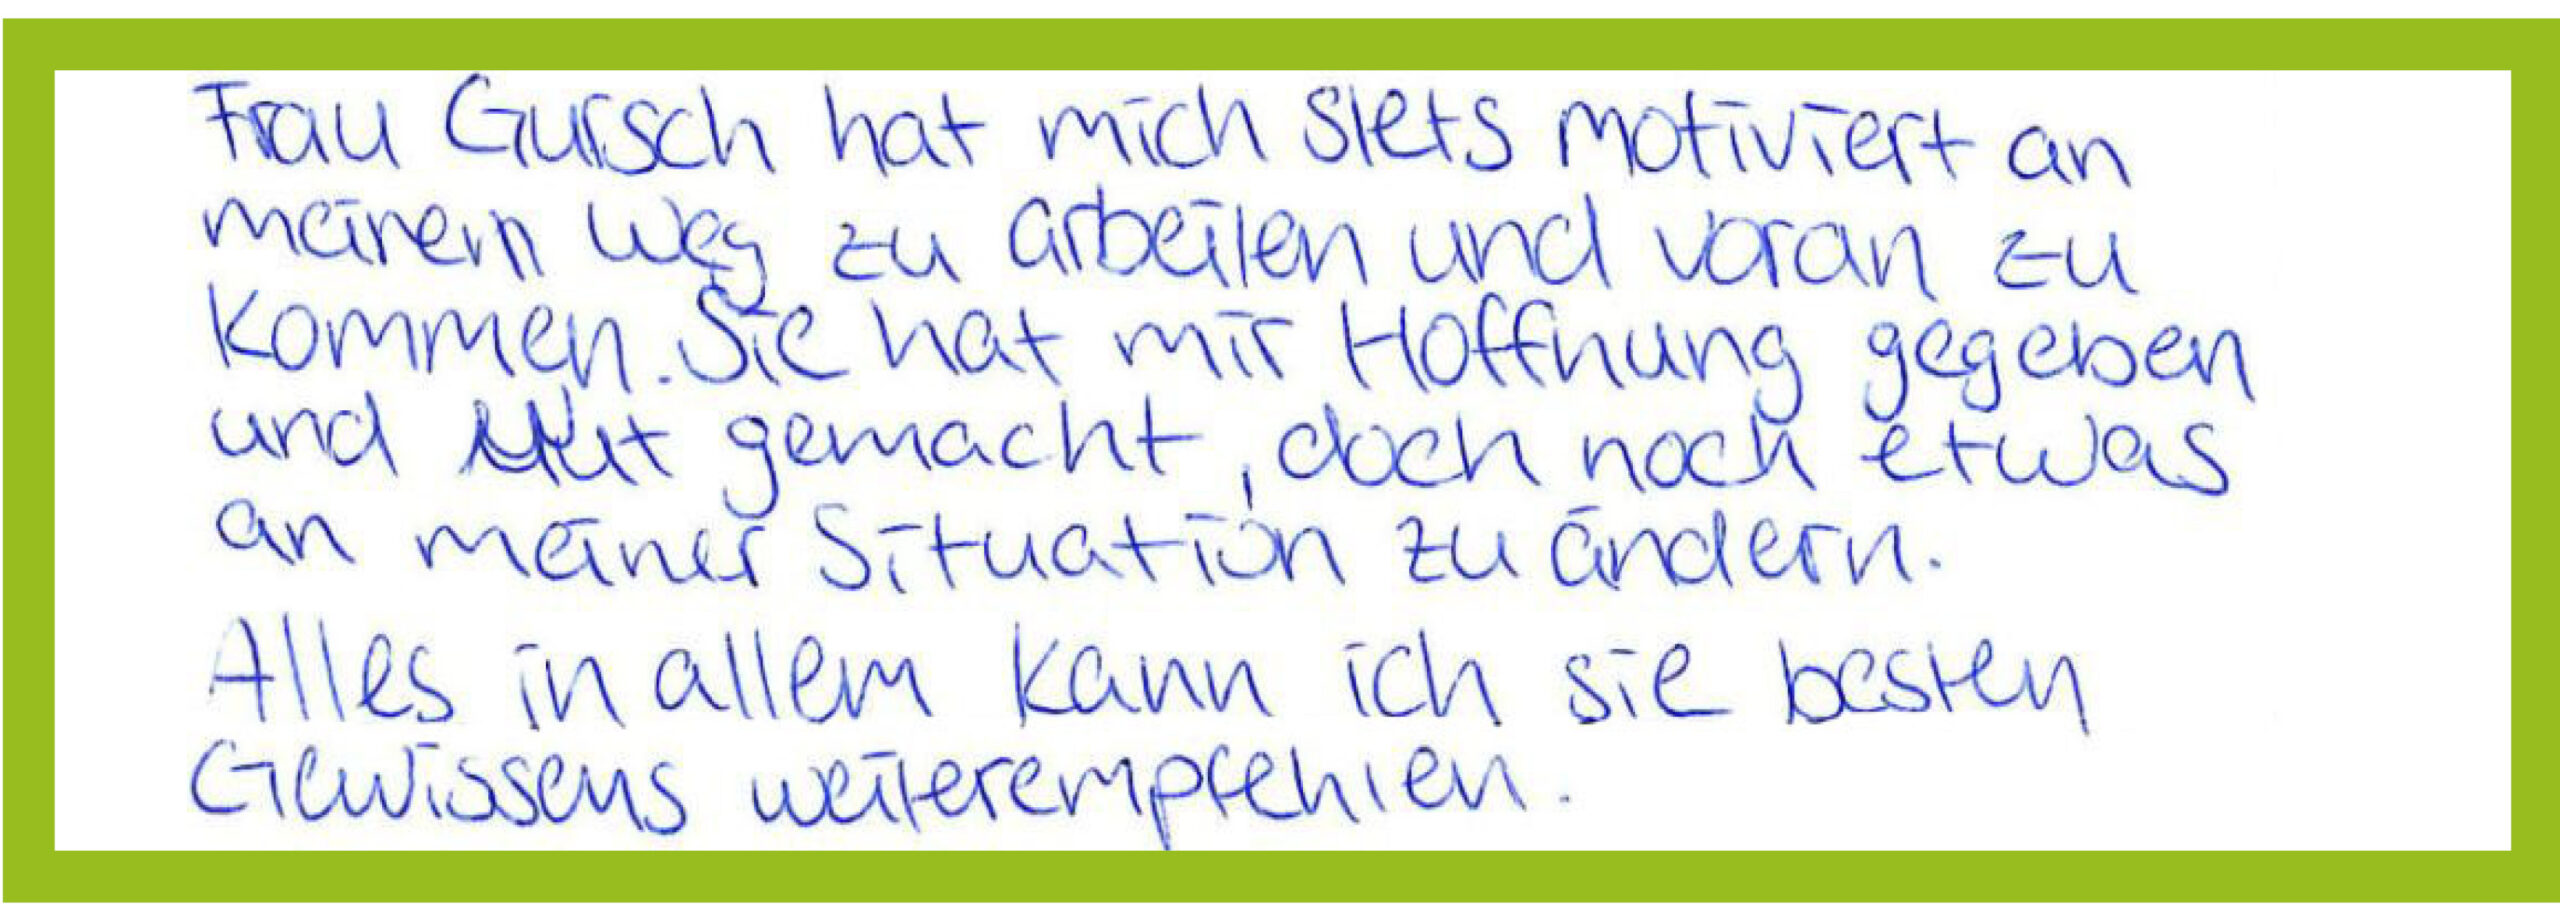 Frau Gursch hat mich stets motiviert an
meinem Weg zu arbeiten und voran zu
kommen. Sie hat mir Hoffnung gegeben
und Mut gemacht, doch noch etwas
an meiner Situation zu ändern.
Alles in allem kann ich sie besten
Gewissens weiterempfehlen.